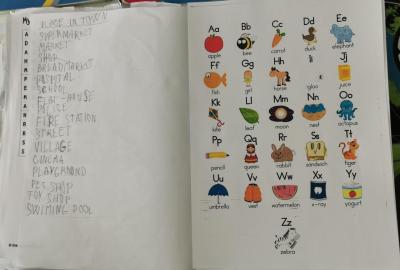 MY
PLACE IN TOWN
SUPERMARKET
MARKET
SHOP
HOSPITAL
SCHOOL
FLAT-HOUSE
FIRE STATION
STREET
VILLAGE
CINEMA
PLAYGROUND
PET SHOP
TOY SHOP
SWIMING POOL
Aa Bb Cc Dd Ee
apple bee carrot duck elephant
Ff Gg Hh Jj
fish girl horse igloo juice
Kk Ll Mm Nn Oo
kite leaf moon nest octopus
Pp Qq Rr Ss Tt
pencil queen rabbit sandwich tiger
Uu Vv Ww Xx Yy
umbrella vest watermelon x-ray yogurt
Zz
zebra